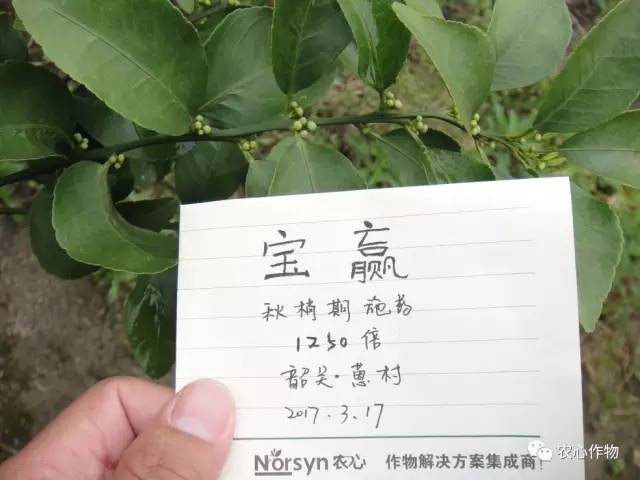 宝赢
秋梢期施药
1250倍
韶关·蒽村
2017.3.17
Norsyn农心 作物解决方案集成商!
农心作物